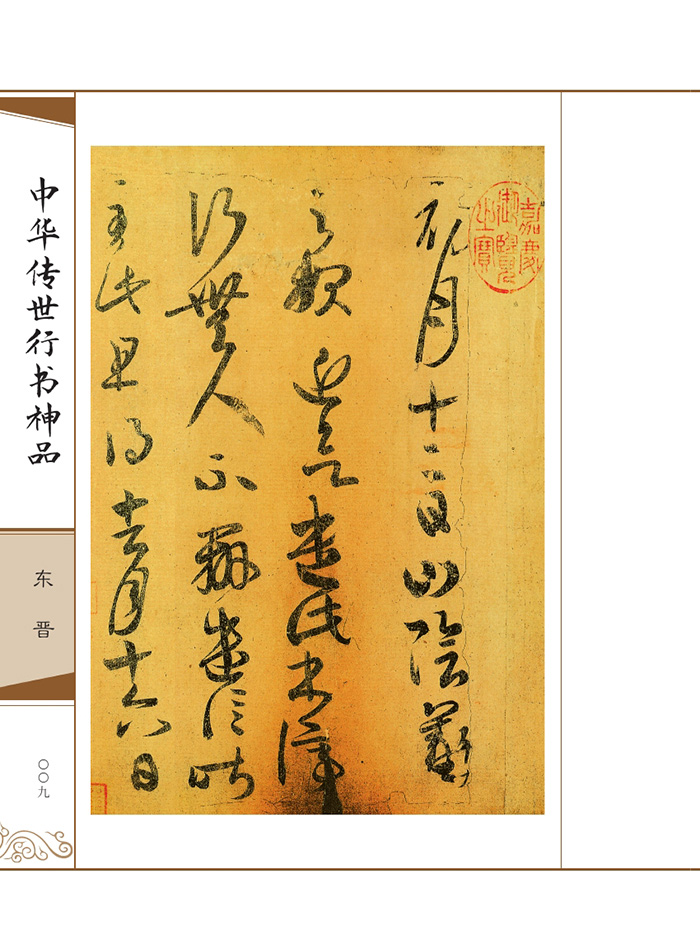 初月十二日山陰羲
之報近欲遣此書停
行無人不辦遣信昨
至此且得去月十六日
嘉慶御覽之寶
中华传世行书神品
东晋
〇〇九